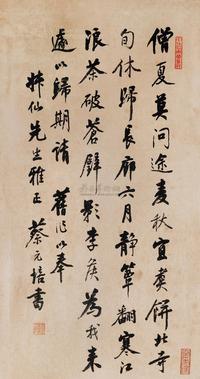 僧夏莫问途麦秋宜煮饼北寺
旬休归长廊六月静簟翻寒江
浪茶破苍壁影李侯为我来
遽以归期请 旧作以奉
先生雅正 蔡元培书